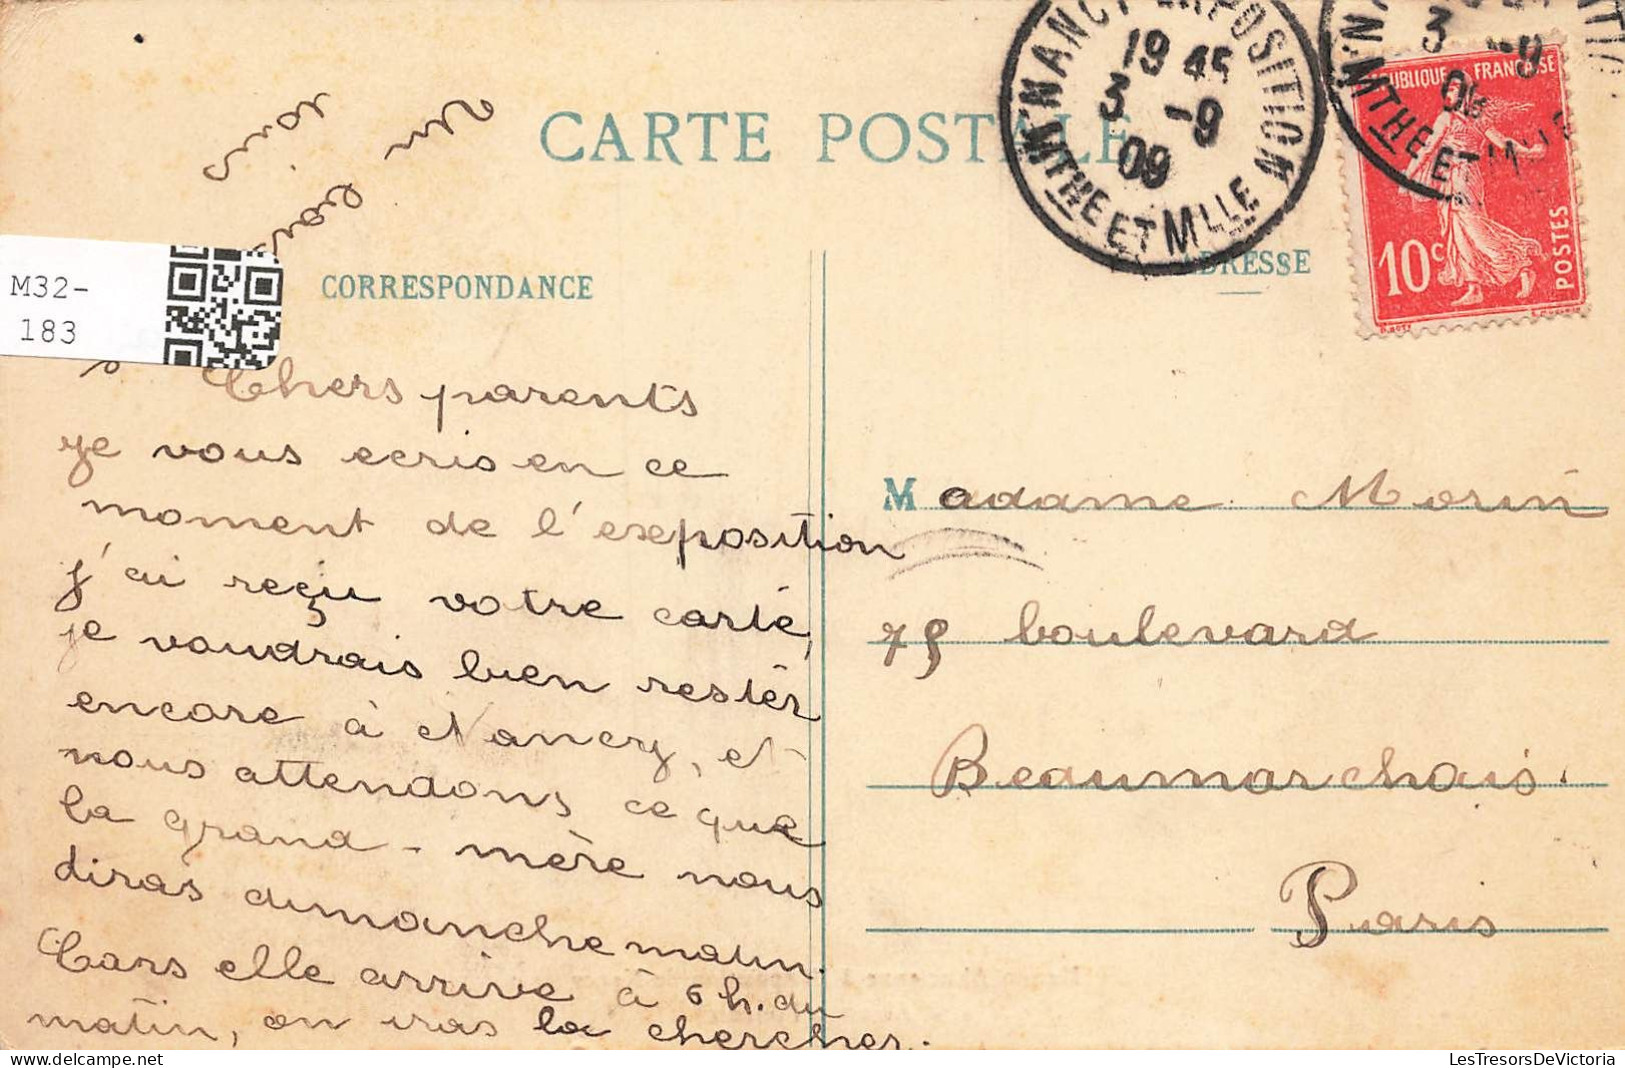 CARTE POSTALE
CORRESPONDANCE
ADRESSE
NANCY EXPOSITION
19 45
3 -9
09
MTHE ET MLLE
3 -9
09
MTHE ET M
RÉPUBLIQUE FRANÇAISE
10c
POSTES
M32-
183
Chers parents
je vous ecris en ce
moment de l'exposition
j'ai reçu votre carte,
je voudrais bien restér
encore à Nancy, et
nous attendons ce que
la grand-mère nous
diras dimanche matin.
Cars elle arrive à 6 h. du
matin, on iras la chercher.
Madame Morin
75 boulevard
Beaumarchais.
Paris
LesTresorsDeVictoria